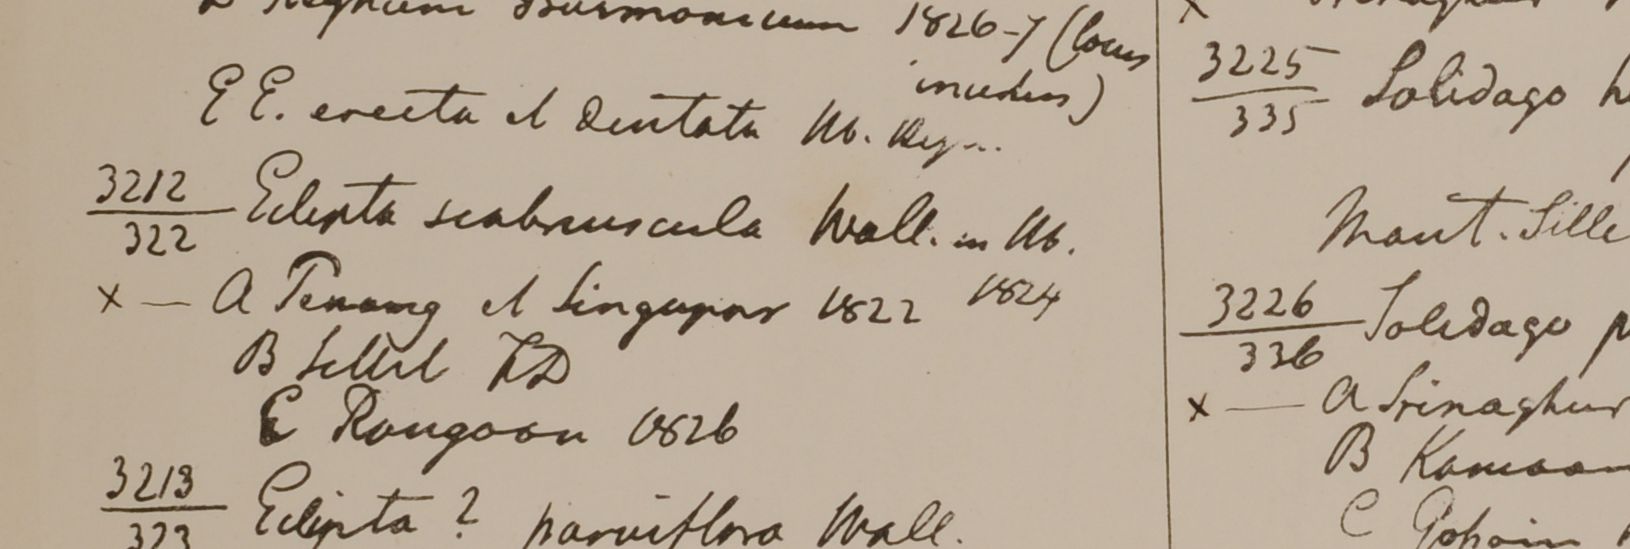 Burmanicum 1826-7 (locus
incertus)
E E. erecta et dentata Hb. Heyn.
3212
322
Eclipta scabriuscula Wall. in Hb.
1824
x — A Penang et Singapur 1822
B Sillet FD
C Rangoon 1826
3213
323
Eclipta? parviflora Wall.
x
3225
335
Solidago
Mont. Sille
3226
336
Solidago p
x — A Srinaghur
B Kamaon
C